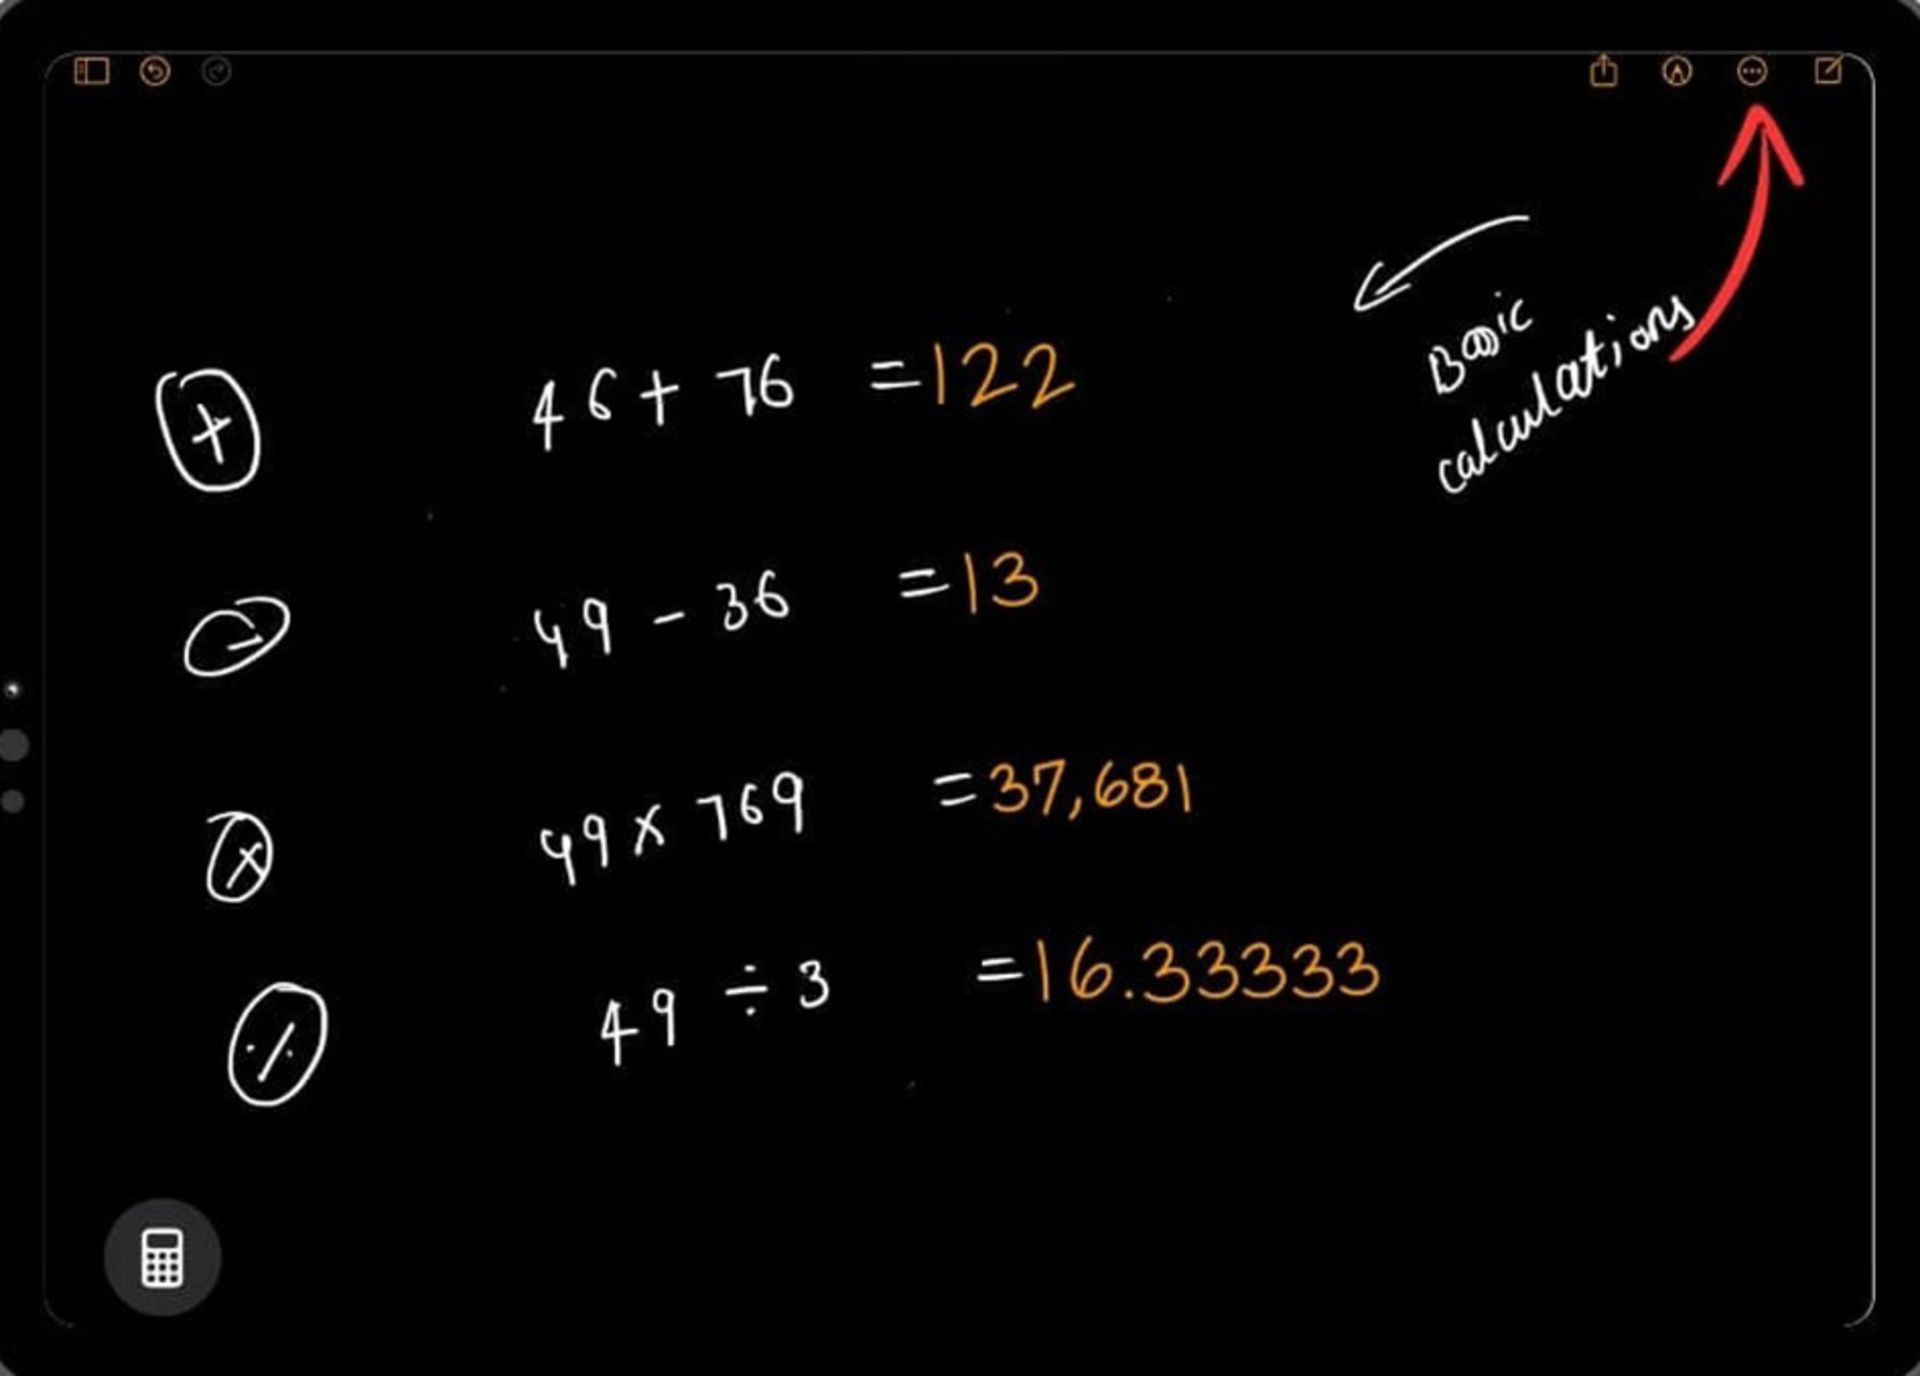 Basic
calculations
+ 46 + 76 = 122
- 49 - 36 = 13
× 49 × 769 = 37,681
÷ 49 ÷ 3 = 16.33333